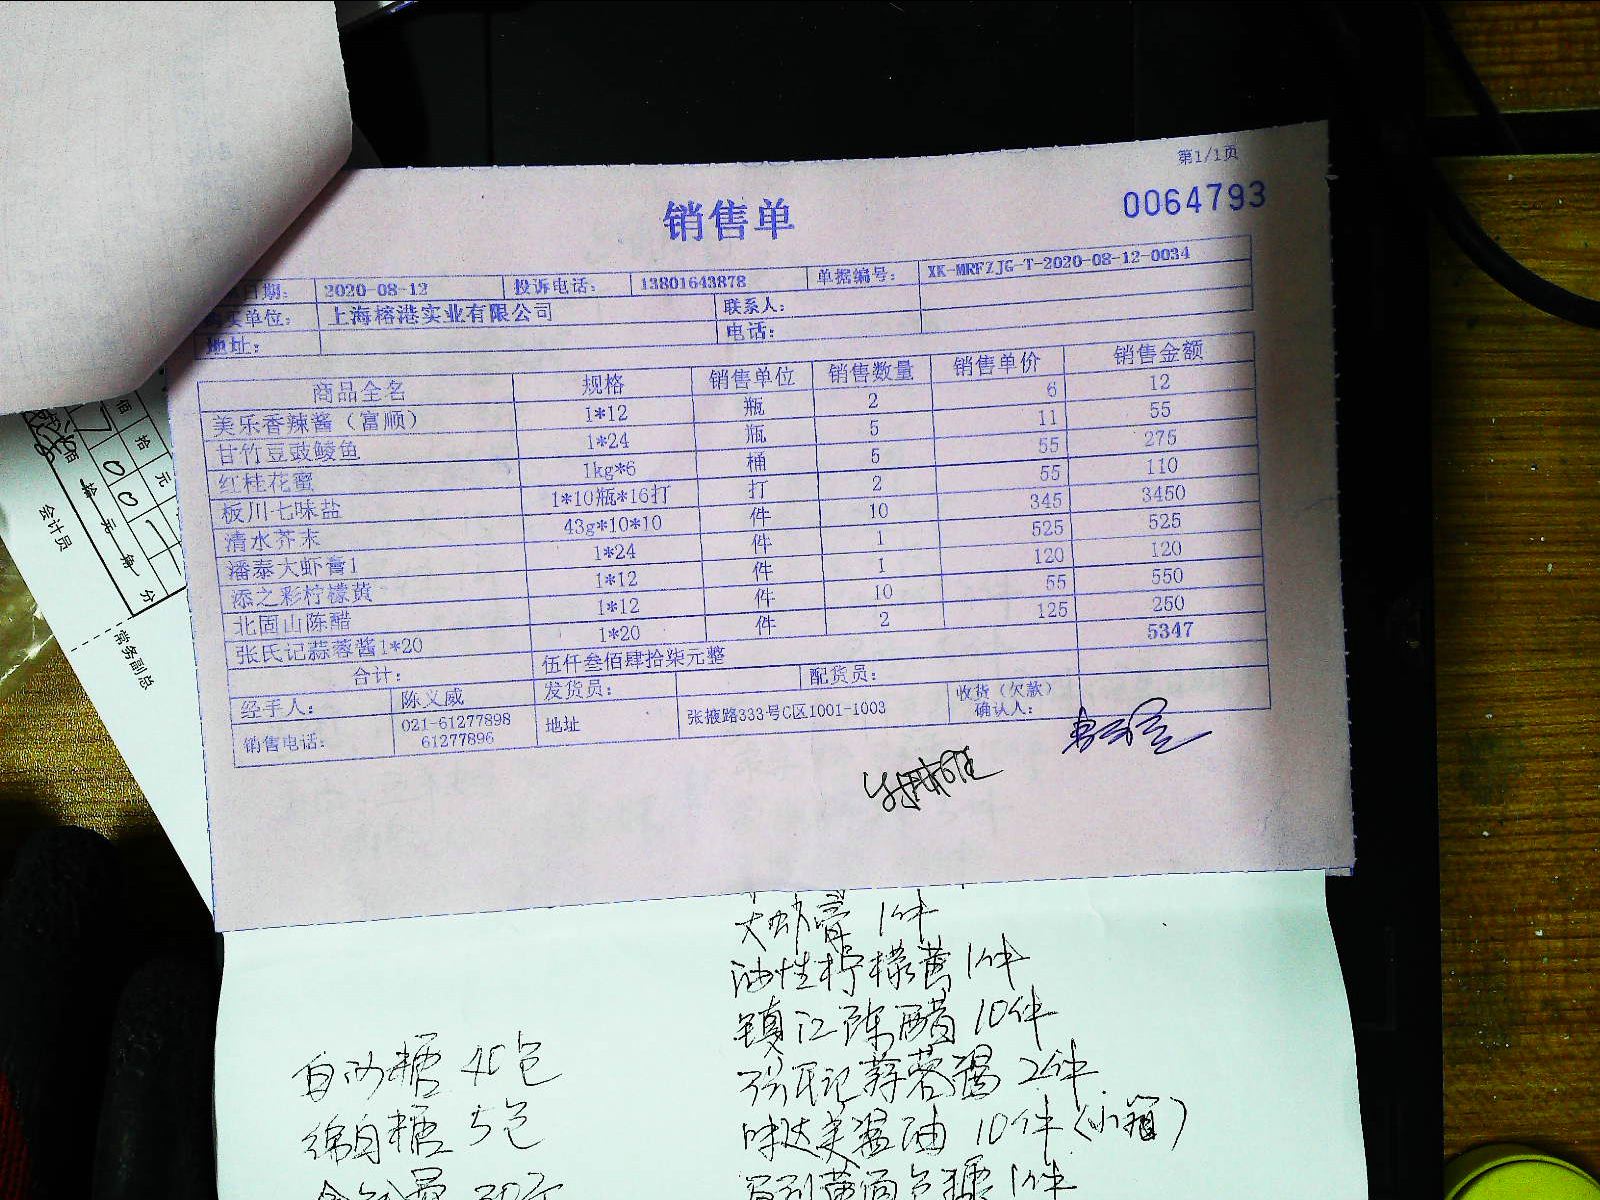 第1/1页
销售单
0064793
日期： 2020-08-12 投诉电话： 13801643878 单据编号： XK-MRFZJG-T-2020-08-12-0034
单位： 上海榕港实业有限公司 联系人：
地址： 电话：
商品全名 规格 销售单位 销售数量 销售单价 销售金额
美乐香辣酱（富顺） 1*12 瓶 2 6 12
甘竹豆豉鲮鱼 1*24 瓶 5 11 55
红桂花蜜 1kg*6 桶 5 55 275
板川七味盐 1*10瓶*16打 打 2 55 110
清水芥末 43g*10*10 件 10 345 3450
潘泰大虾膏1 1*24 件 1 525 525
添之彩柠檬黄 1*12 件 1 120 120
北固山陈醋 1*12 件 10 55 550
张氏记蒜蓉酱1*20 1*20 件 2 125 250
合计： 伍仟叁佰肆拾柒元整 5347
经手人： 陈义威 发货员： 配货员： 收货（欠款）
确认人：
销售电话： 021-61277898
61277896 地址 张掖路333号C区1001-1003
佰
拾
元
佰 拾 元 角 分
会计员
常务副总
大虾膏 1件
油性柠檬黄 1件
镇江陈醋 10件
张氏记蒜蓉酱 2件
味达美酱油 10件（小箱）
白砂糖 40包
绵白糖 5包